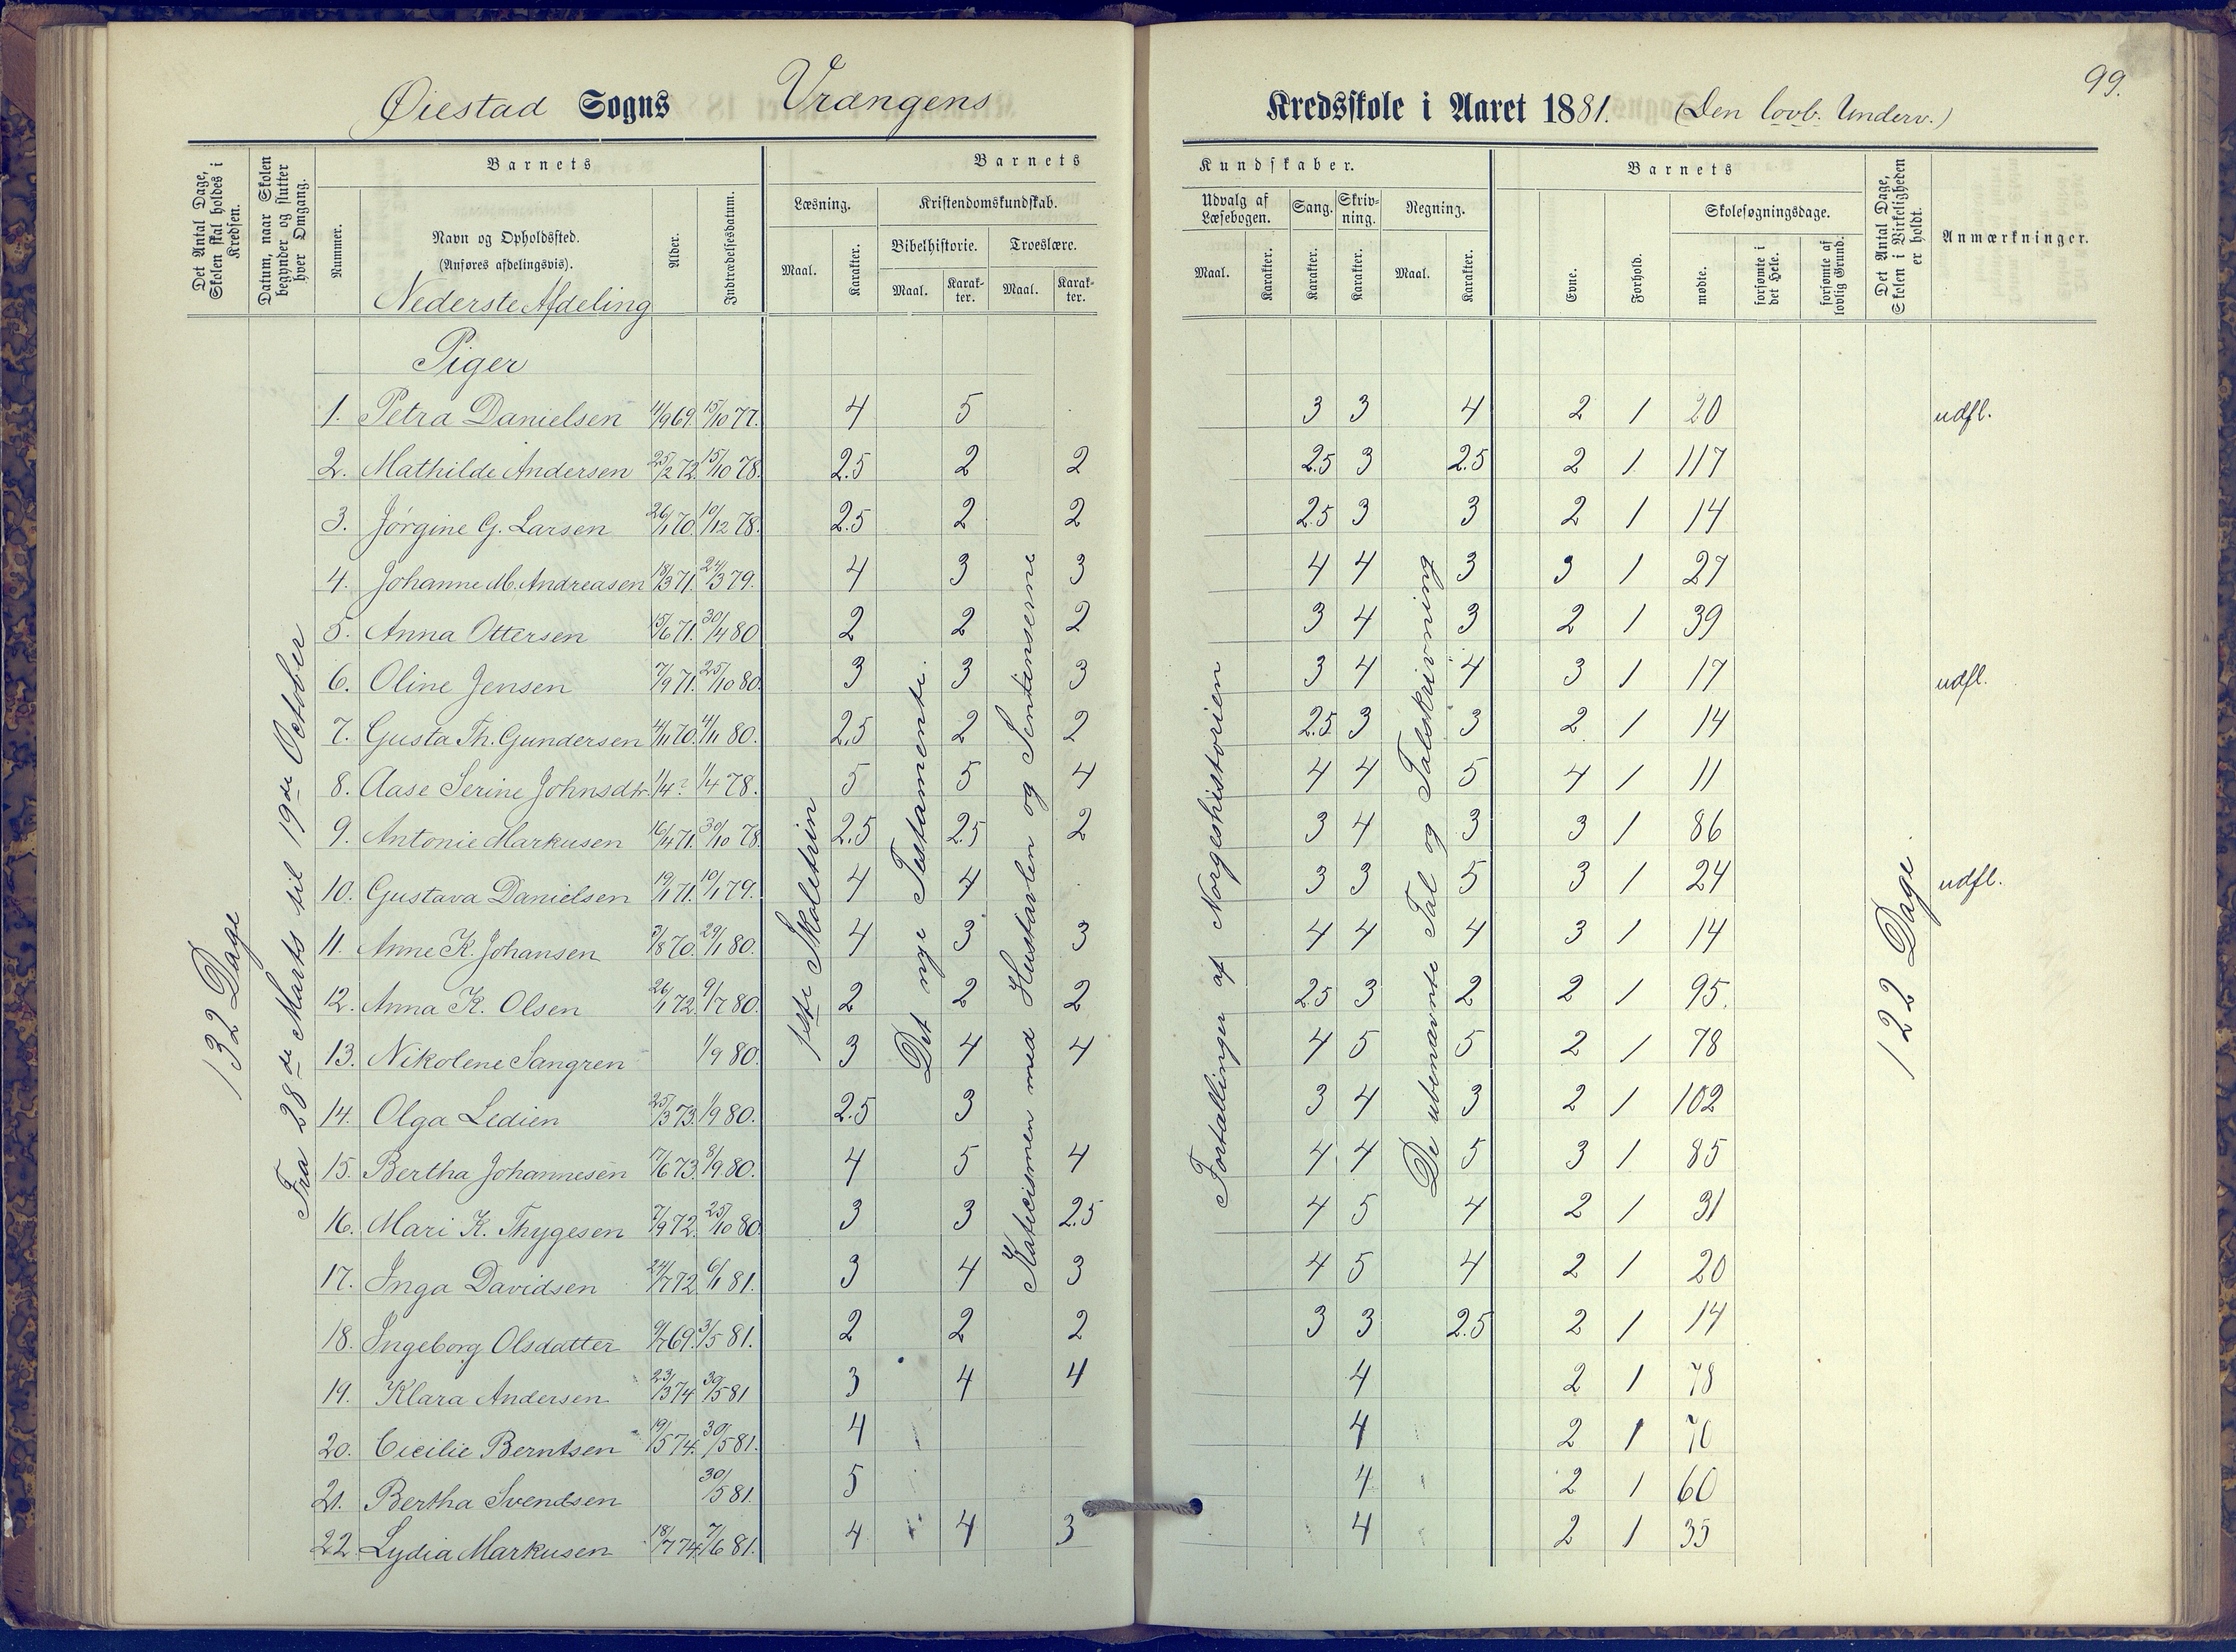 99.
Øiestad Sogns Vrangens Kredsskole i Aaret 1881. (Den lovb. Underv.)
Det Antal Dage, Skolen skal holdes i Kredsen.
Datum, naar Skolen begynder og slutter hver Omgang.
Barnets
Nummer.
Navn og Opholdssted.
(Anføres afdelingsvis).
Nederste Afdeling
Alder.
Indtrædelsesdatum.
Barnets Kundskaber.
Læsning.
Maal.
Karakter.
Kristendomskundskab.
Bibelhistorie.
Maal.
Karakter.
Troeslære.
Maal.
Karakter.
Udvalg af Læsebogen.
Maal.
Karakter.
Sang.
Karakter.
Skrivning.
Karakter.
Regning.
Maal.
Karakter.
Barnets
Evne.
Forhold.
Skolesøgningsdage.
mødte.
forsømte i det Hele.
forsømte af lovlig Grund.
Det Antal Dage, Skolen i Virkeligheden er holdt.
Anmærkninger.
132 Dage
Fra 28de Marts til 19de October
1ste Skoletrin
Det nye Testamente.
Katecismen med Hustavlen og Sentenserne
Fortællinger af Norgeshistorien
De ubenævnte Tal og Talskrivning
122 Dage
Piger
1. Petra Danielsen 11/9 69. 15/10 77. 4 5 3 3 4 2 1 20 udfl.
2. Mathilde Andersen 25/2 72. 15/10 78. 2.5 2 2 2.5 3 2.5 2 1 117
3. Jørgine G. Larsen 26/1 70. 10/12 78. 2.5 2 2 2.5 3 3 2 1 14
4. Johanne M. Andreasen 18/3 71. 24/3 79. 4 3 3 4 4 3 3 1 27
5. Anna Ottersen 15/6 71. 30/4 80 2 2 2 3 4 3 2 1 39
6. Oline Jensen 7/9 71. 25/10 80. 3 3 3 3 4 4 3 1 17 udfl.
7. Gusta Th. Gundersen 4/11 70. 4/11 80. 2.5 2 2 2.5 3 3 2 1 14
8. Aase Serine Johnsdtr. 1/4 ? 1/4 78. 5 5 4 4 4 5 4 1 11
9. Antonie Markusen 16/4 71. 30/10 78. 2.5 2.5 2 3 4 3 3 1 86
10. Gustava Danielsen 19/1 71. 10/1 79. 4 4 3 3 5 3 1 24 udfl.
11. Anne K. Johansen 3/8 70. 29/1 80. 4 3 3 4 4 4 3 1 14
12. Anna K. Olsen 26/1 72. 9/7 80. 2 2 2 2.5 3 2 2 1 95.
13. Nikolene Sangren 1/9 80. 3 4 4 4 5 5 2 1 78
14. Olga Ledien 25/3 73. 1/9 80. 2.5 3 3 4 3 2 1 102
15. Bertha Johannesen 17/6 73. 8/9 80. 4 5 4 4 4 5 3 1 85
16. Mari K. Thygesen 7/9 72. 25/10 80. 3 3 2.5 4 5 4 2 1 31
17. Inga Davidsen 24/7 72 6/1 81. 3 4 3 4 5 4 2 1 20
18. Ingeborg Olsdatter 9/7 69. 3/5 81. 2 2 2 3 3 2.5 2 1 14
19. Klara Andersen 23/3 74 30/5 81 3 4 4 4 2 1 78
20. Cicilie Berntsen 19/5 74. 30/5 81. 4 4 2 1 70
21. Bertha Svendsen 30/5 81. 5 4 2 1 60
22 Lydia Markusen 18/7 74. 7/6 81. 4 4 3 4 2 1 35